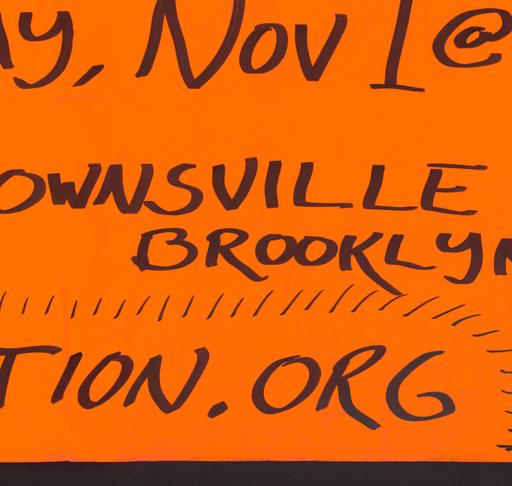 ay, Nov 1 @
OWNSVILLE
BROOKLYN
TION.ORG